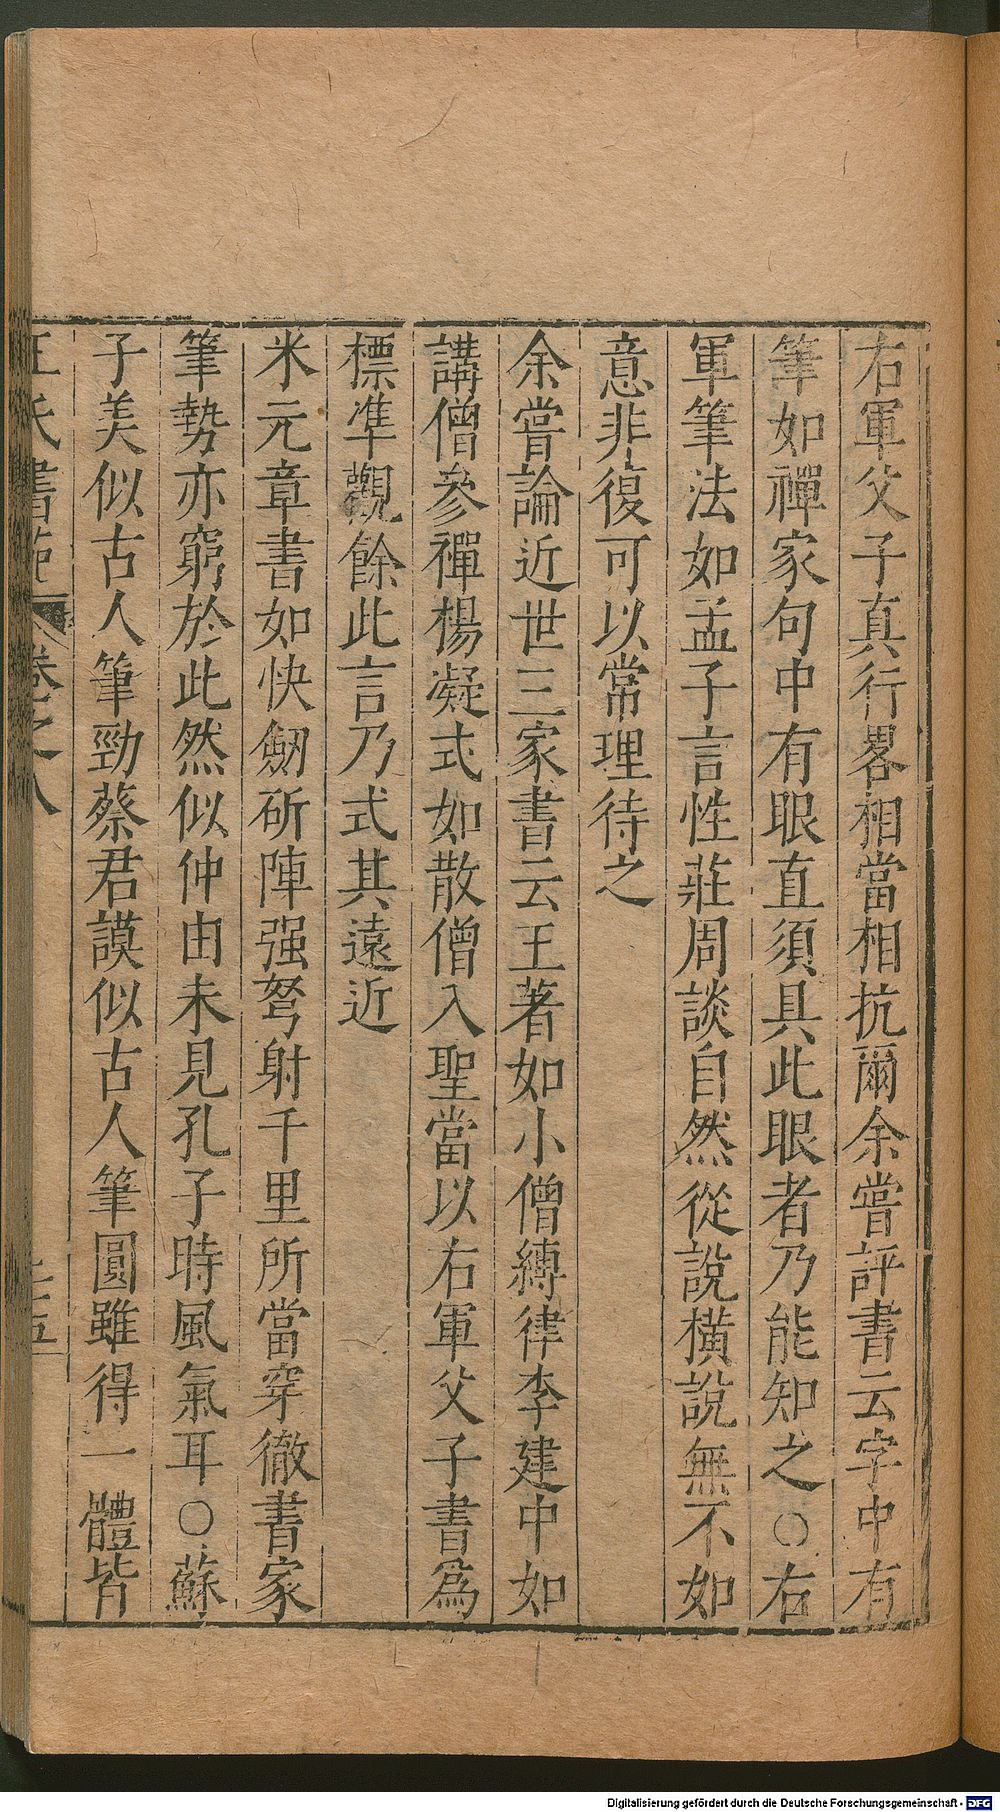 右軍父子真行畧相當相抗爾余嘗評書云字中有
筆如禪家句中有眼直須具此眼者乃能知之○右
軍筆法如孟子言性莊周談自然從說橫說無不如
意非復可以常理待之
余嘗論近世三家書云王著如小僧縛律李建中如
講僧參禪楊凝式如散僧入聖當以右軍父子書爲
標準觀餘此言乃式其遠近
米元章書如快劒斫陣强弩射千里所當穿徹書家
筆勢亦窮於此然似仲由未見孔子時風氣耳○蘇
子美似古人筆勁蔡君謨似古人筆圓雖得一體皆
王氏書苑 卷之八 五
Digitalisierung gefördert durch die Deutsche Forschungsgemeinschaft - DFG